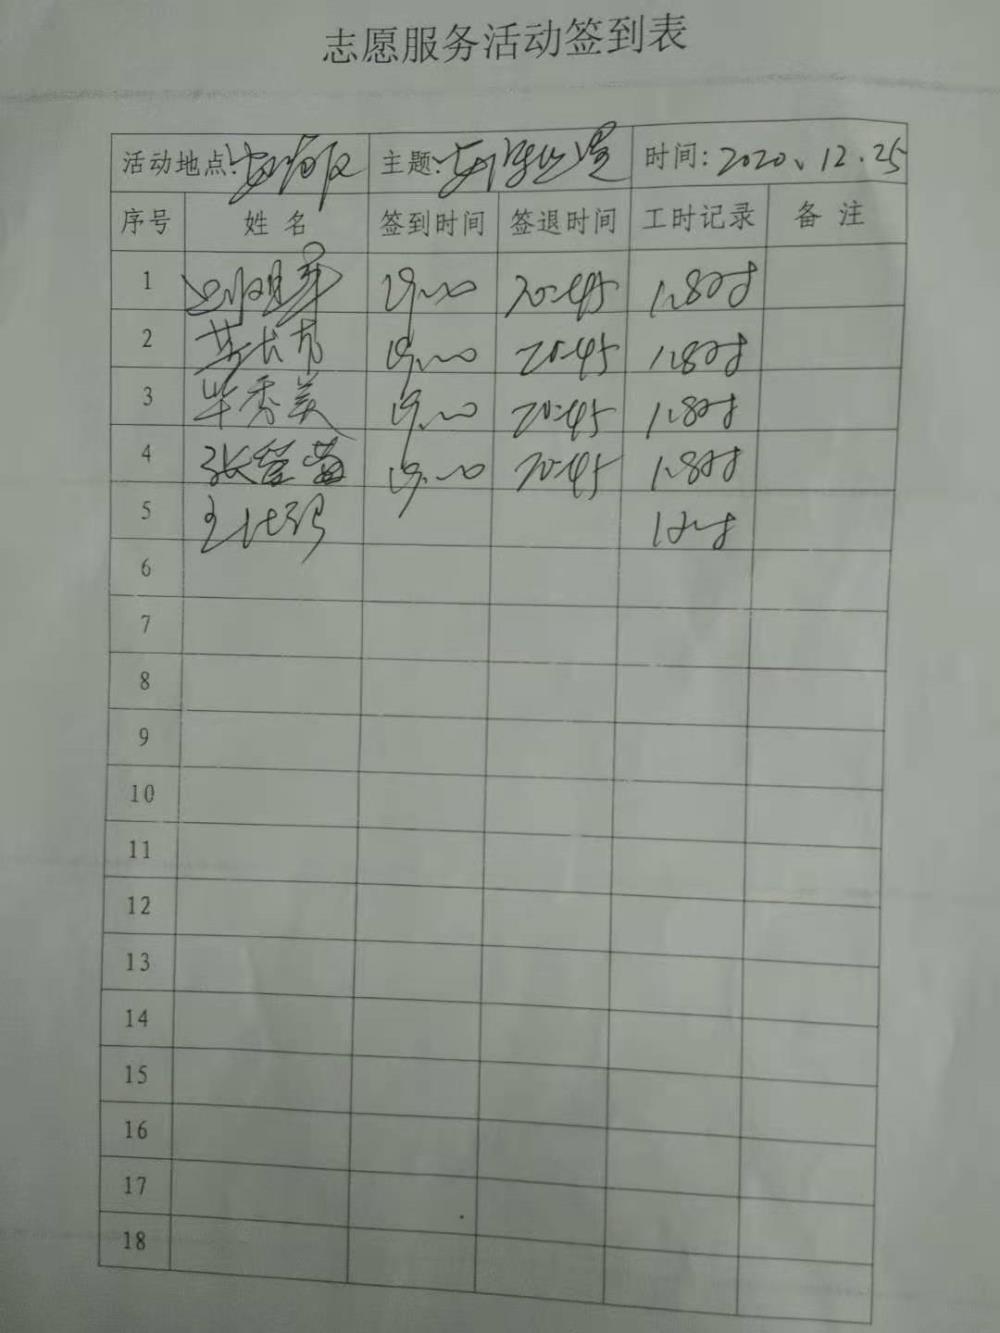 志愿服务活动签到表
活动地点: 主题: 时间: 2020、12.25
序号 姓名 签到时间 签退时间 工时记录 备注
1 19:00 20:45 1.8时
2 19:00 20:45 1.8时
3 毕秀美 19:00 20:45 1.8时
4 张 19:00 20:45 1.8时
5 王 
6
7
8
9
10
11
12
13
14
15
16
17
18